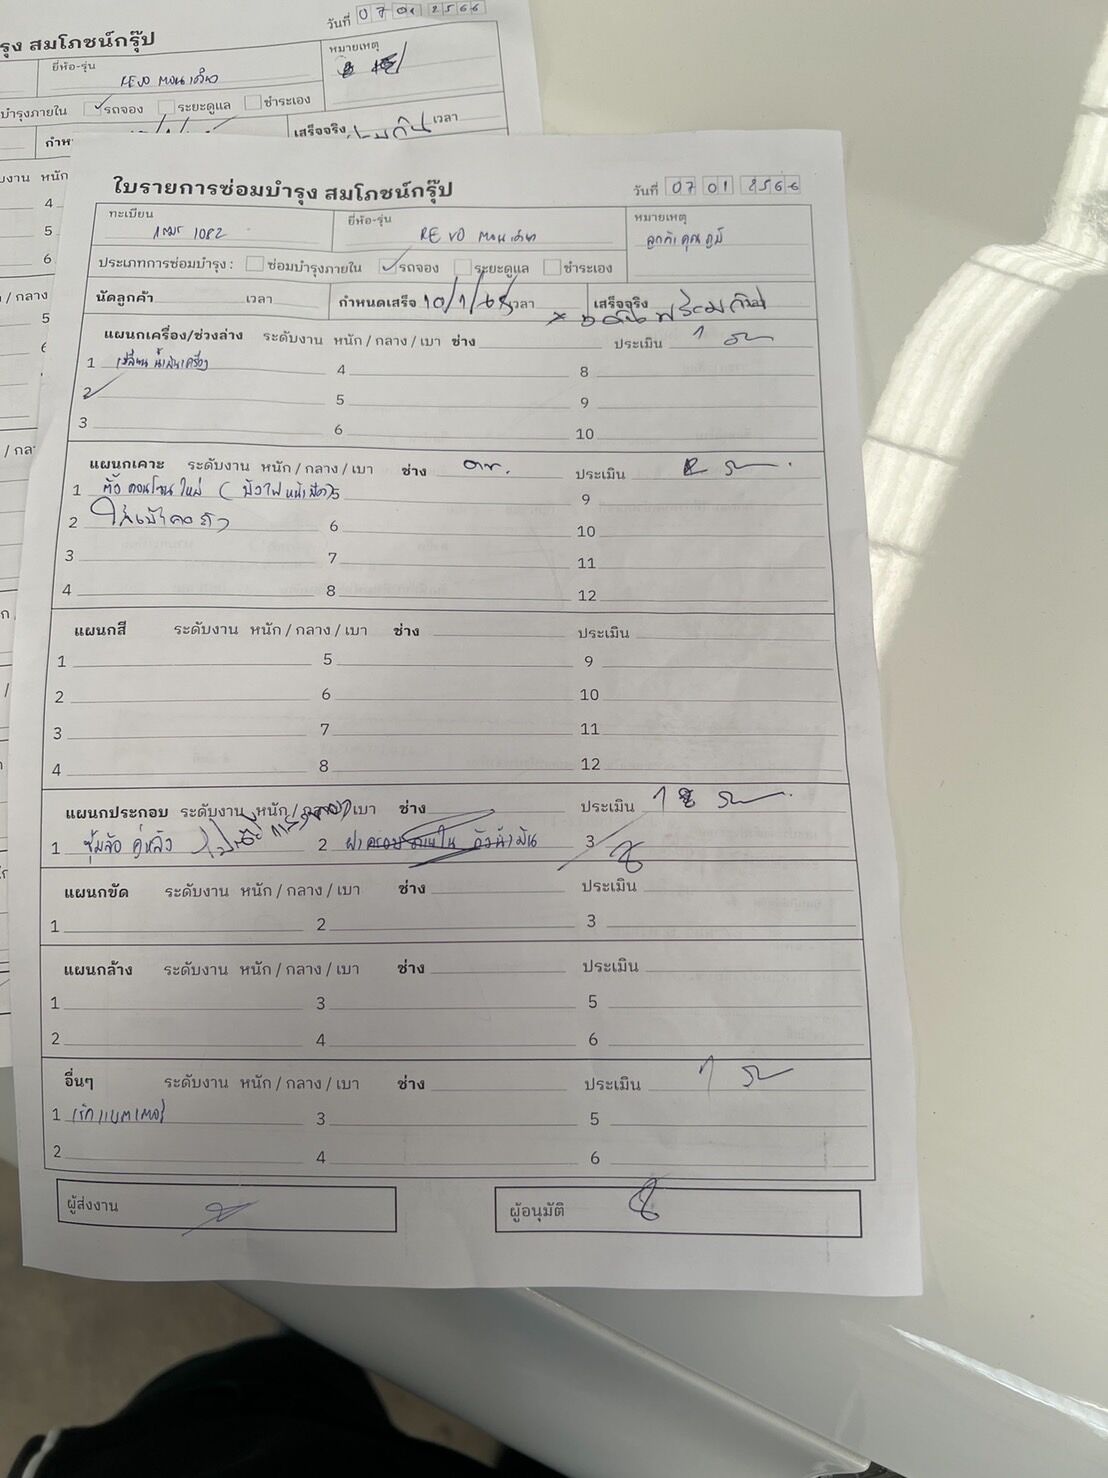 รุง สมโภชน์กรุ๊ป วันที่ 07 01 2566
ยี่ห้อ-รุ่น REVO ตอนเดียว หมายเหตุ
บำรุงภายใน รถจอง ระยะดูแล ชำระเอง
กำห เสร็จจริง เวลา
งาน หนัก
4
5
6
/ กลาง
5
ใบรายการซ่อมบำรุง สมโภชน์กรุ๊ป วันที่ 07 01 2566
ทะเบียน 1082 ยี่ห้อ-รุ่น REVO ตอนเดียว หมายเหตุ ลูกค้าคุณภูมิ
ประเภทการซ่อมบำรุง : ซ่อมบำรุงภายใน รถจอง ระยะดูแล ชำระเอง
นัดลูกค้า เวลา กำหนดเสร็จ 10/1/ เวลา เสร็จจริง
แผนกเครื่อง/ช่วงล่าง ระดับงาน หนัก / กลาง / เบา ช่าง ประเมิน 1
1 เปลี่ยนน้ำมันเครื่อง 4 8
2 5 9
3 6 10
แผนกเคาะ ระดับงาน หนัก / กลาง / เบา ช่าง ประเมิน
1 ใหม่ 5 9
2 6 10
3 7 11
4 8 12
แผนกสี ระดับงาน หนัก / กลาง / เบา ช่าง ประเมิน
1 5 9
2 6 10
3 7 11
4 8 12
แผนกประกอบ ระดับงาน หนัก / กลาง / เบา ช่าง ประเมิน 1
1 ซุ้มล้อ คู่หลัง 2 3
แผนกขัด ระดับงาน หนัก / กลาง / เบา ช่าง ประเมิน
1 2 3
แผนกล้าง ระดับงาน หนัก / กลาง / เบา ช่าง ประเมิน
1 3 5
2 4 6
อื่นๆ ระดับงาน หนัก / กลาง / เบา ช่าง ประเมิน 1
1 เช็คแบตเตอรี่ 3 5
2 4 6
ผู้ส่งงาน ผู้อนุมัติ